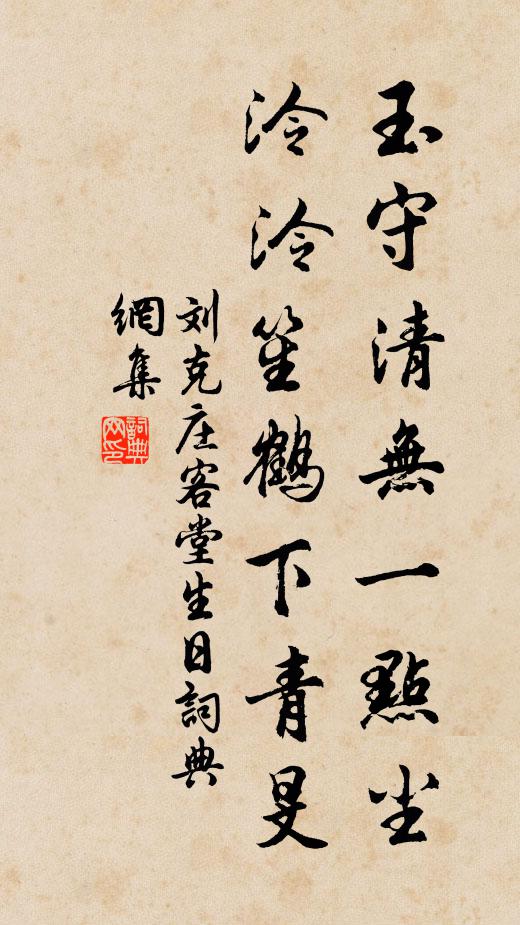 玉守清無一點尘
泠泠笙鶴下青旻
刘克庄客堂生日詞典
網集
詞典网印